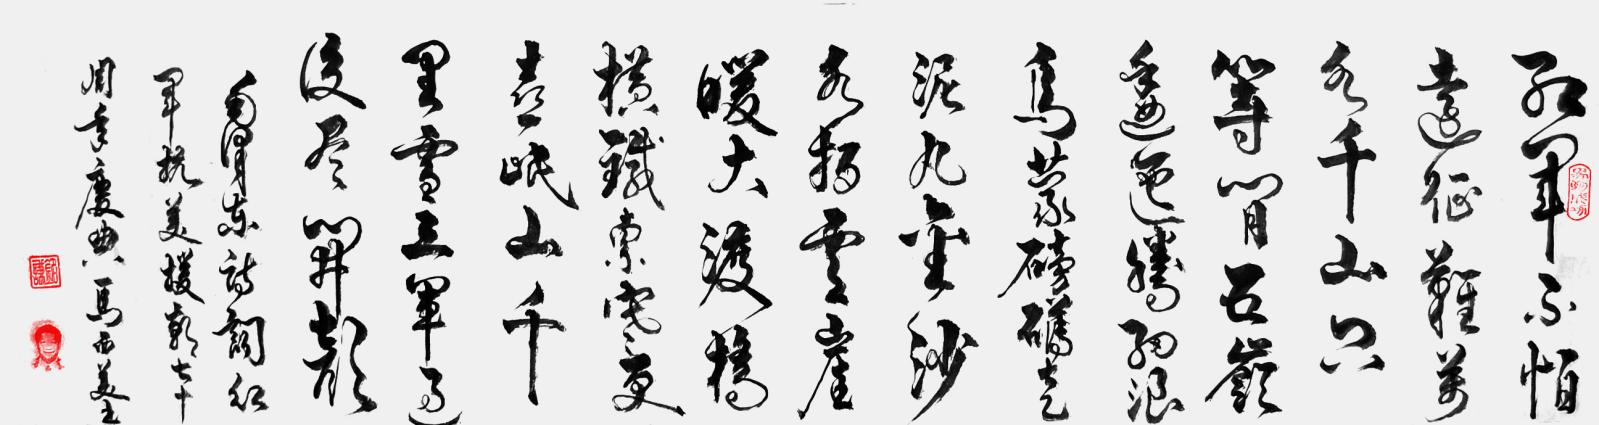 红軍不怕
遠征難萬
水千山只
等閒五嶺
逶迤騰细浪
烏蒙磅礴走
泥丸金沙
水拍雲崖
暖大渡橋
横鐵索寒更
喜岷山千
里雪三軍過
後尽開颜
毛澤东詩詞红
軍抗美援朝七十
周年慶典馬西美